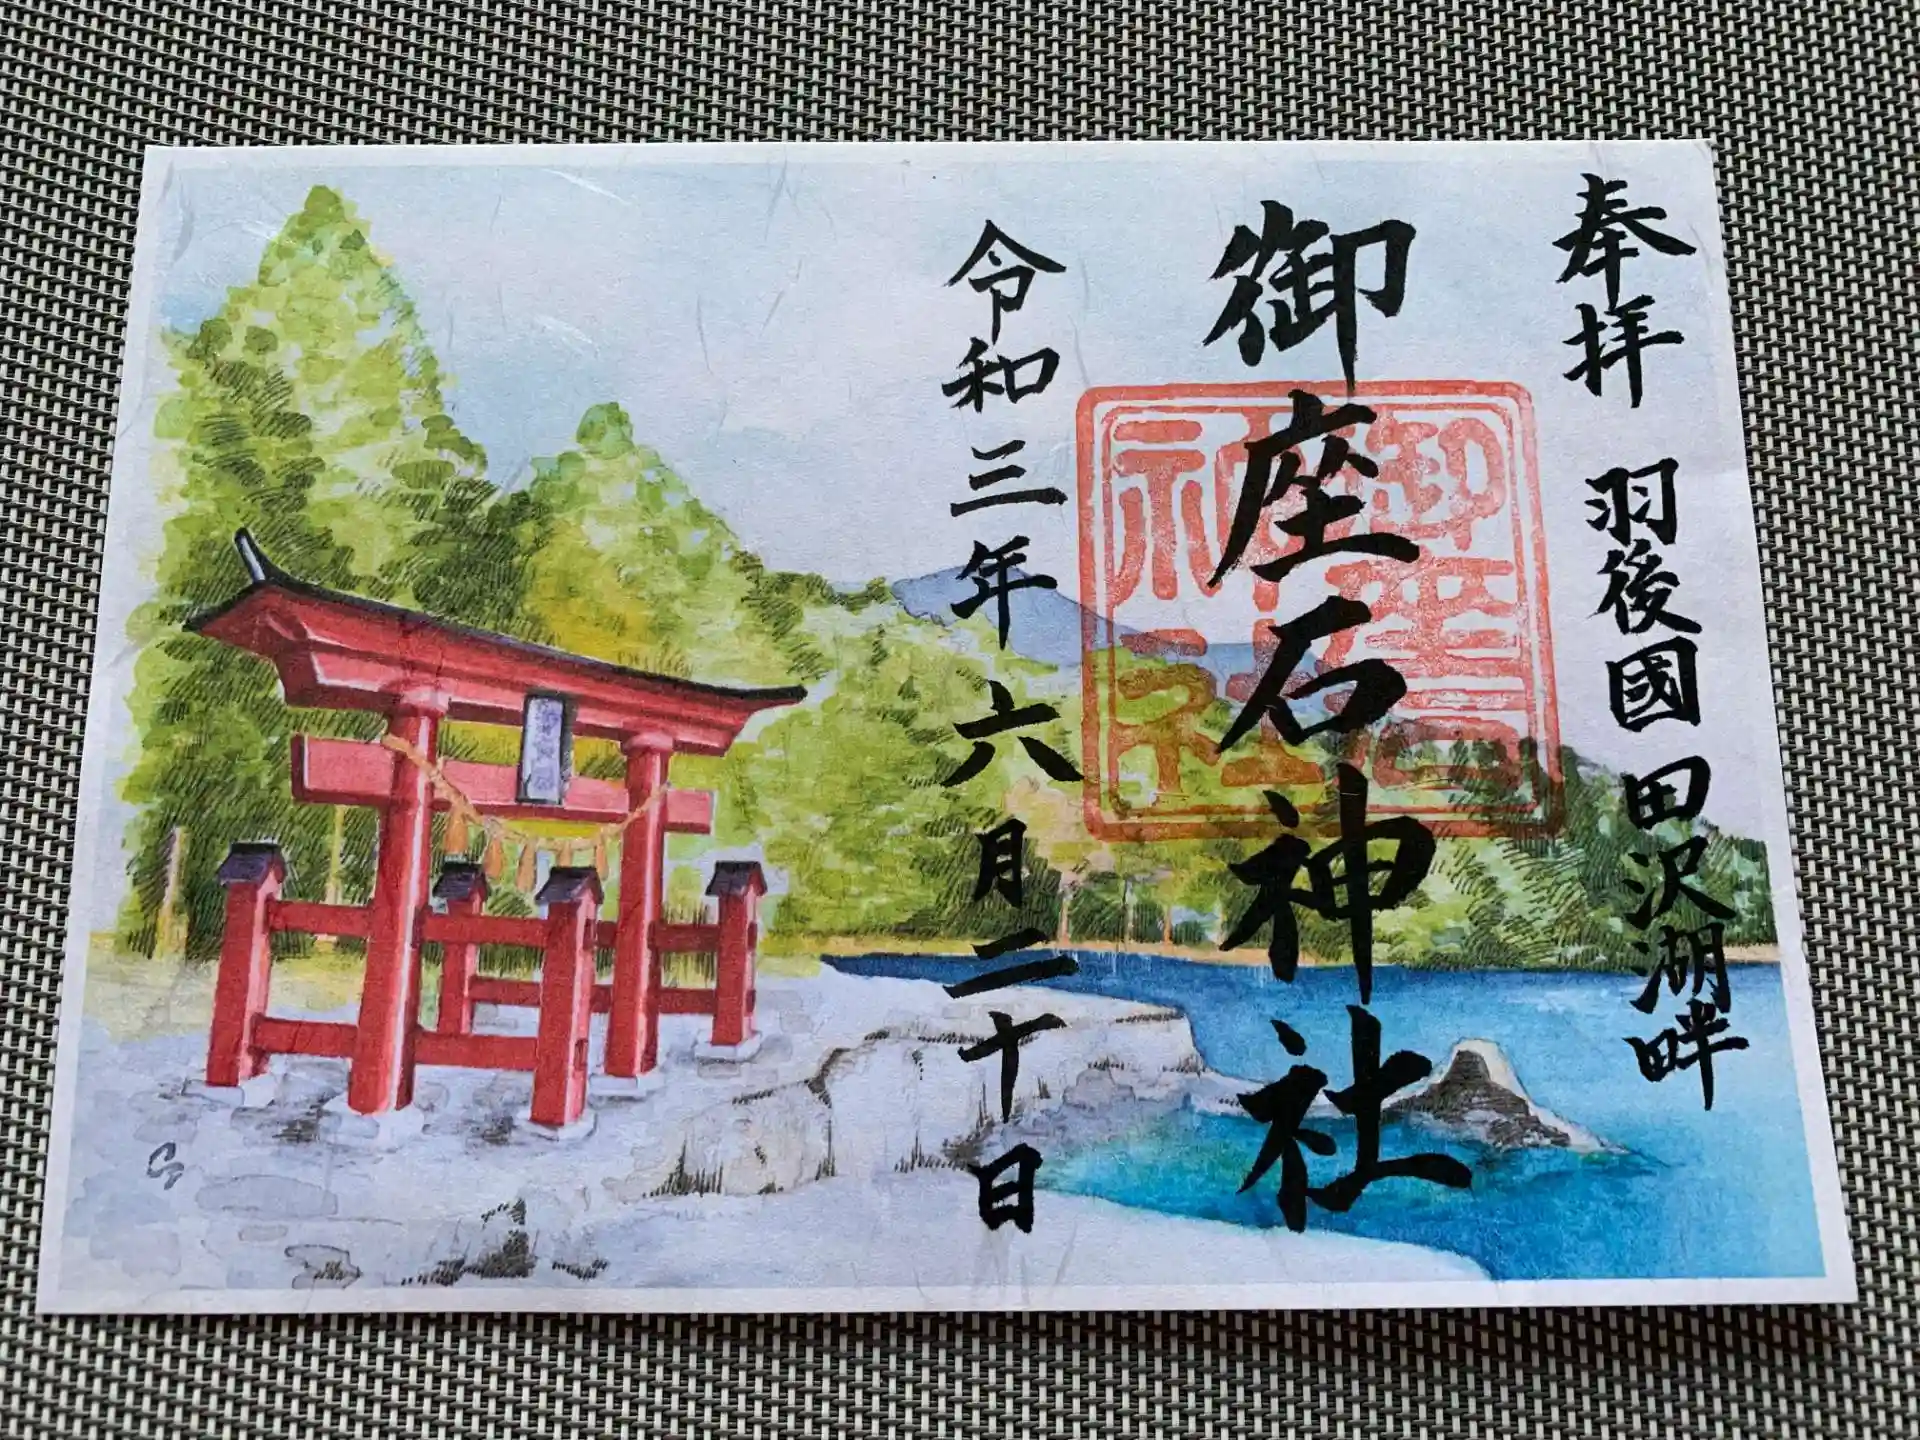 奉拝 羽後國 田沢湖畔
御座石神社
御座石神社
令和三年六月二十日